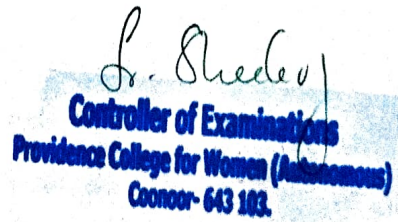 Sr. Sheeba
Controller of Examinations
Providence College for Women (Autonomous)
Coonoor- 643 103.